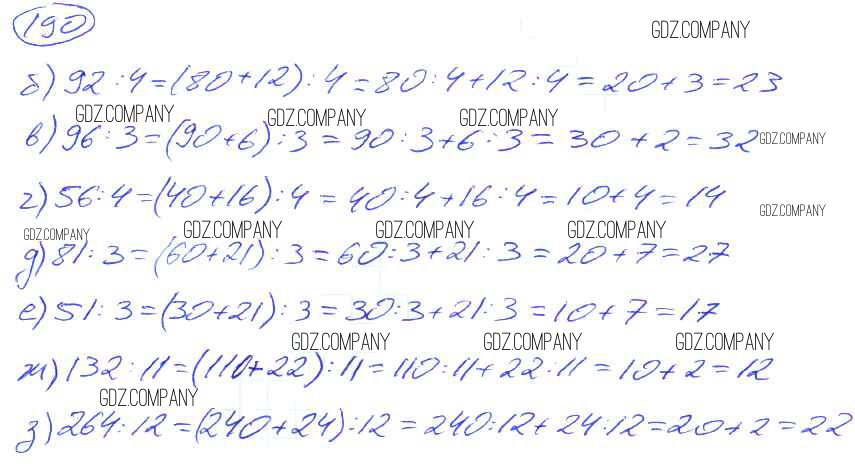 190
GDZ.COMPANY
б) 92 : 4 = (80 + 12) : 4 = 80 : 4 + 12 : 4 = 20 + 3 = 23
GDZ.COMPANY GDZ.COMPANY GDZ.COMPANY
в) 96 : 3 = (90 + 6) : 3 = 90 : 3 + 6 : 3 = 30 + 2 = 32 GDZ.COMPANY
г) 56 : 4 = (40 + 16) : 4 = 40 : 4 + 16 : 4 = 10 + 4 = 14
GDZ.COMPANY
GDZ.COMPANY GDZ.COMPANY GDZ.COMPANY GDZ.COMPANY
д) 81 : 3 = (60 + 21) : 3 = 60 : 3 + 21 : 3 = 20 + 7 = 27
е) 51 : 3 = (30 + 21) : 3 = 30 : 3 + 21 : 3 = 10 + 7 = 17
GDZ.COMPANY GDZ.COMPANY GDZ.COMPANY
ж) 132 : 11 = (110 + 22) : 11 = 110 : 11 + 22 : 11 = 10 + 2 = 12
GDZ.COMPANY
з) 264 : 12 = (240 + 24) : 12 = 240 : 12 + 24 : 12 = 20 + 2 = 22